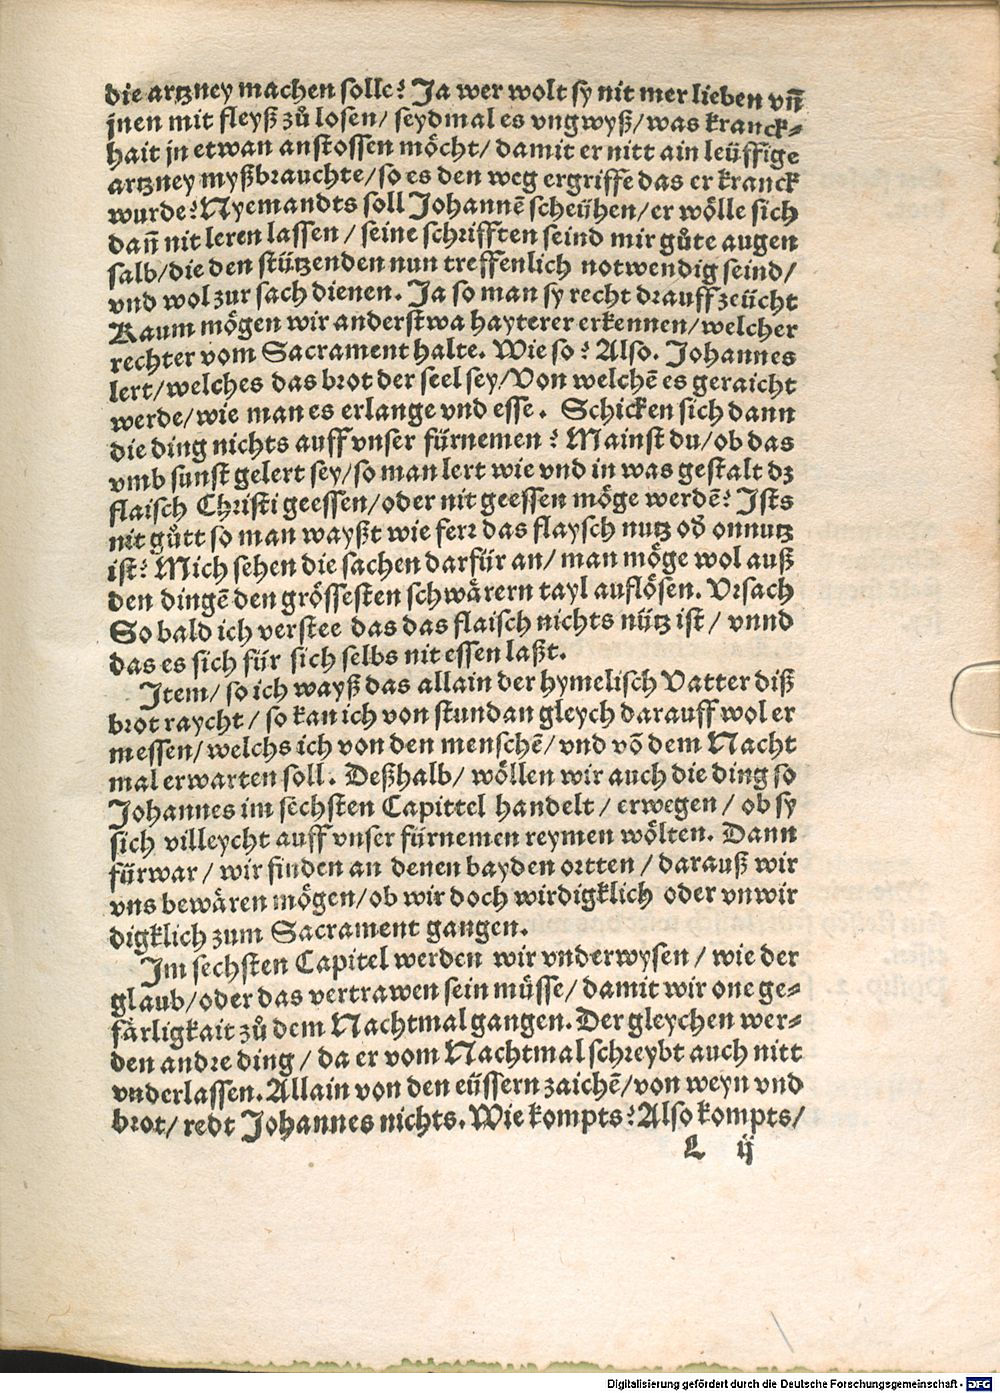 die artzney machen solle? Ja wer wolt sy nit mer lieben vñ
jnen mit fleyß zů losen/ seydmal es vngwyß/ was kranck-
hait jn etwan anstossen möcht/ damit er nitt ain leüffige
artzney myßbrauchte/ so es den weg ergriffe das er kranck
wurde? Nyemandts soll Johannē scheühen/ er wölle sich
dañ nit leren lassen / seine schrifften seind mir gůte augen
salb/ die den stützenden nun treffenlich notwendig seind/
vnd wol zur sach dienen. Ja so man sy recht drauff zeücht
Kaum mögen wir anderstwa hayterer erkennen/ welcher
rechter vom Sacrament halte. Wie so? Also. Johannes
lert/ welches das brot der seel sey/ Von welchē es geraicht
werde/ wie man es erlange vnd esse. Schicken sich dann
die ding nichts auff vnser fürnemen? Mainst du/ ob das
vmb sunst gelert sey/ so man lert wie vnd in was gestalt dz
flaisch Christi geessen/ oder nit geessen möge werdē? Ists
nit gůtt so man wayßt wie ferr das flaysch nutz od̕ onnutz
ist? Mich sehen die sachen darfür an/ man möge wol auß
den dingē den grössesten schwärern tayl auflösen. Vrsach
So bald ich verstee das das flaisch nichts nütz ist/ vnnd
das es sich für sich selbs nit essen laßt.
Item/ so ich wayß das allain der hymelisch Vatter diß
brot raycht/ so kan ich von stundan gleych darauff wol er
messen/ welchs ich von den menschē/ vnd vō dem Nacht
mal erwarten soll. Deßhalb/ wöllen wir auch die ding so
Johannes im sechsten Capittel handelt/ erwegen/ ob sy
sich villeycht auff vnser fürnemen reymen wölten. Dann
fürwar/ wir finden an denen bayden ortten/ darauß wir
vns bewären mögen/ ob wir doch wirdigklich oder vnwir
digklich zum Sacrament gangen.
Im sechsten Capitel werden wir vnderwysen/ wie der
glaub/ oder das vertrawen sein müsse/ damit wir one ge-
färligkait zů dem Nachtmal gangen. Der gleychen wer-
den andre ding/ da er vom Nachtmal schreybt auch nitt
vnderlassen. Allain von den eüssern zaichē/ von weyn vnd
brot/ redt Johannes nichts. Wie kompts? Also kompts/
L ij
Digitalisierung gefördert durch die Deutsche Forschungsgemeinschaft - DFG